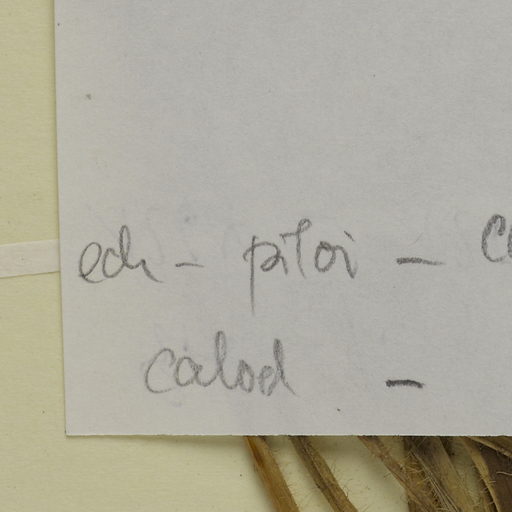 ech - piloi - C
calod -